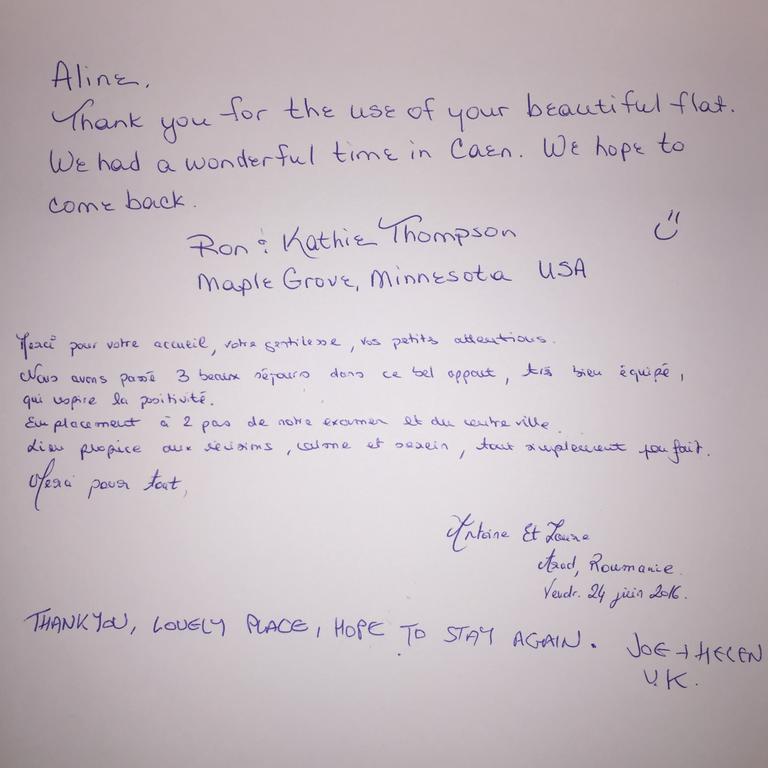 Aline,
Thank you for the use of your beautiful flat.
We had a wonderful time in Caen. We hope to
come back.
Ron & Kathie Thompson
Maple Grove, Minnesota USA
Merci pour votre accueil, votre gentilesse, vos petits attentions.
Nous avons passé 3 beaux séjours dans ce bel appart, très bien équipé,
qui inspire la positivité.
Emplacement à 2 pas de notre examen et du centre ville.
Lieu propice aux révisions, calme et serein, tout simplement parfait.
Merci pour tout,
Antoine Et Laura
Arad, Roumanie.
Vendr. 24 juin 2016.
THANK YOU, LOVELY PLACE, HOPE TO STAY AGAIN.
JOE + HELEN
U.K.